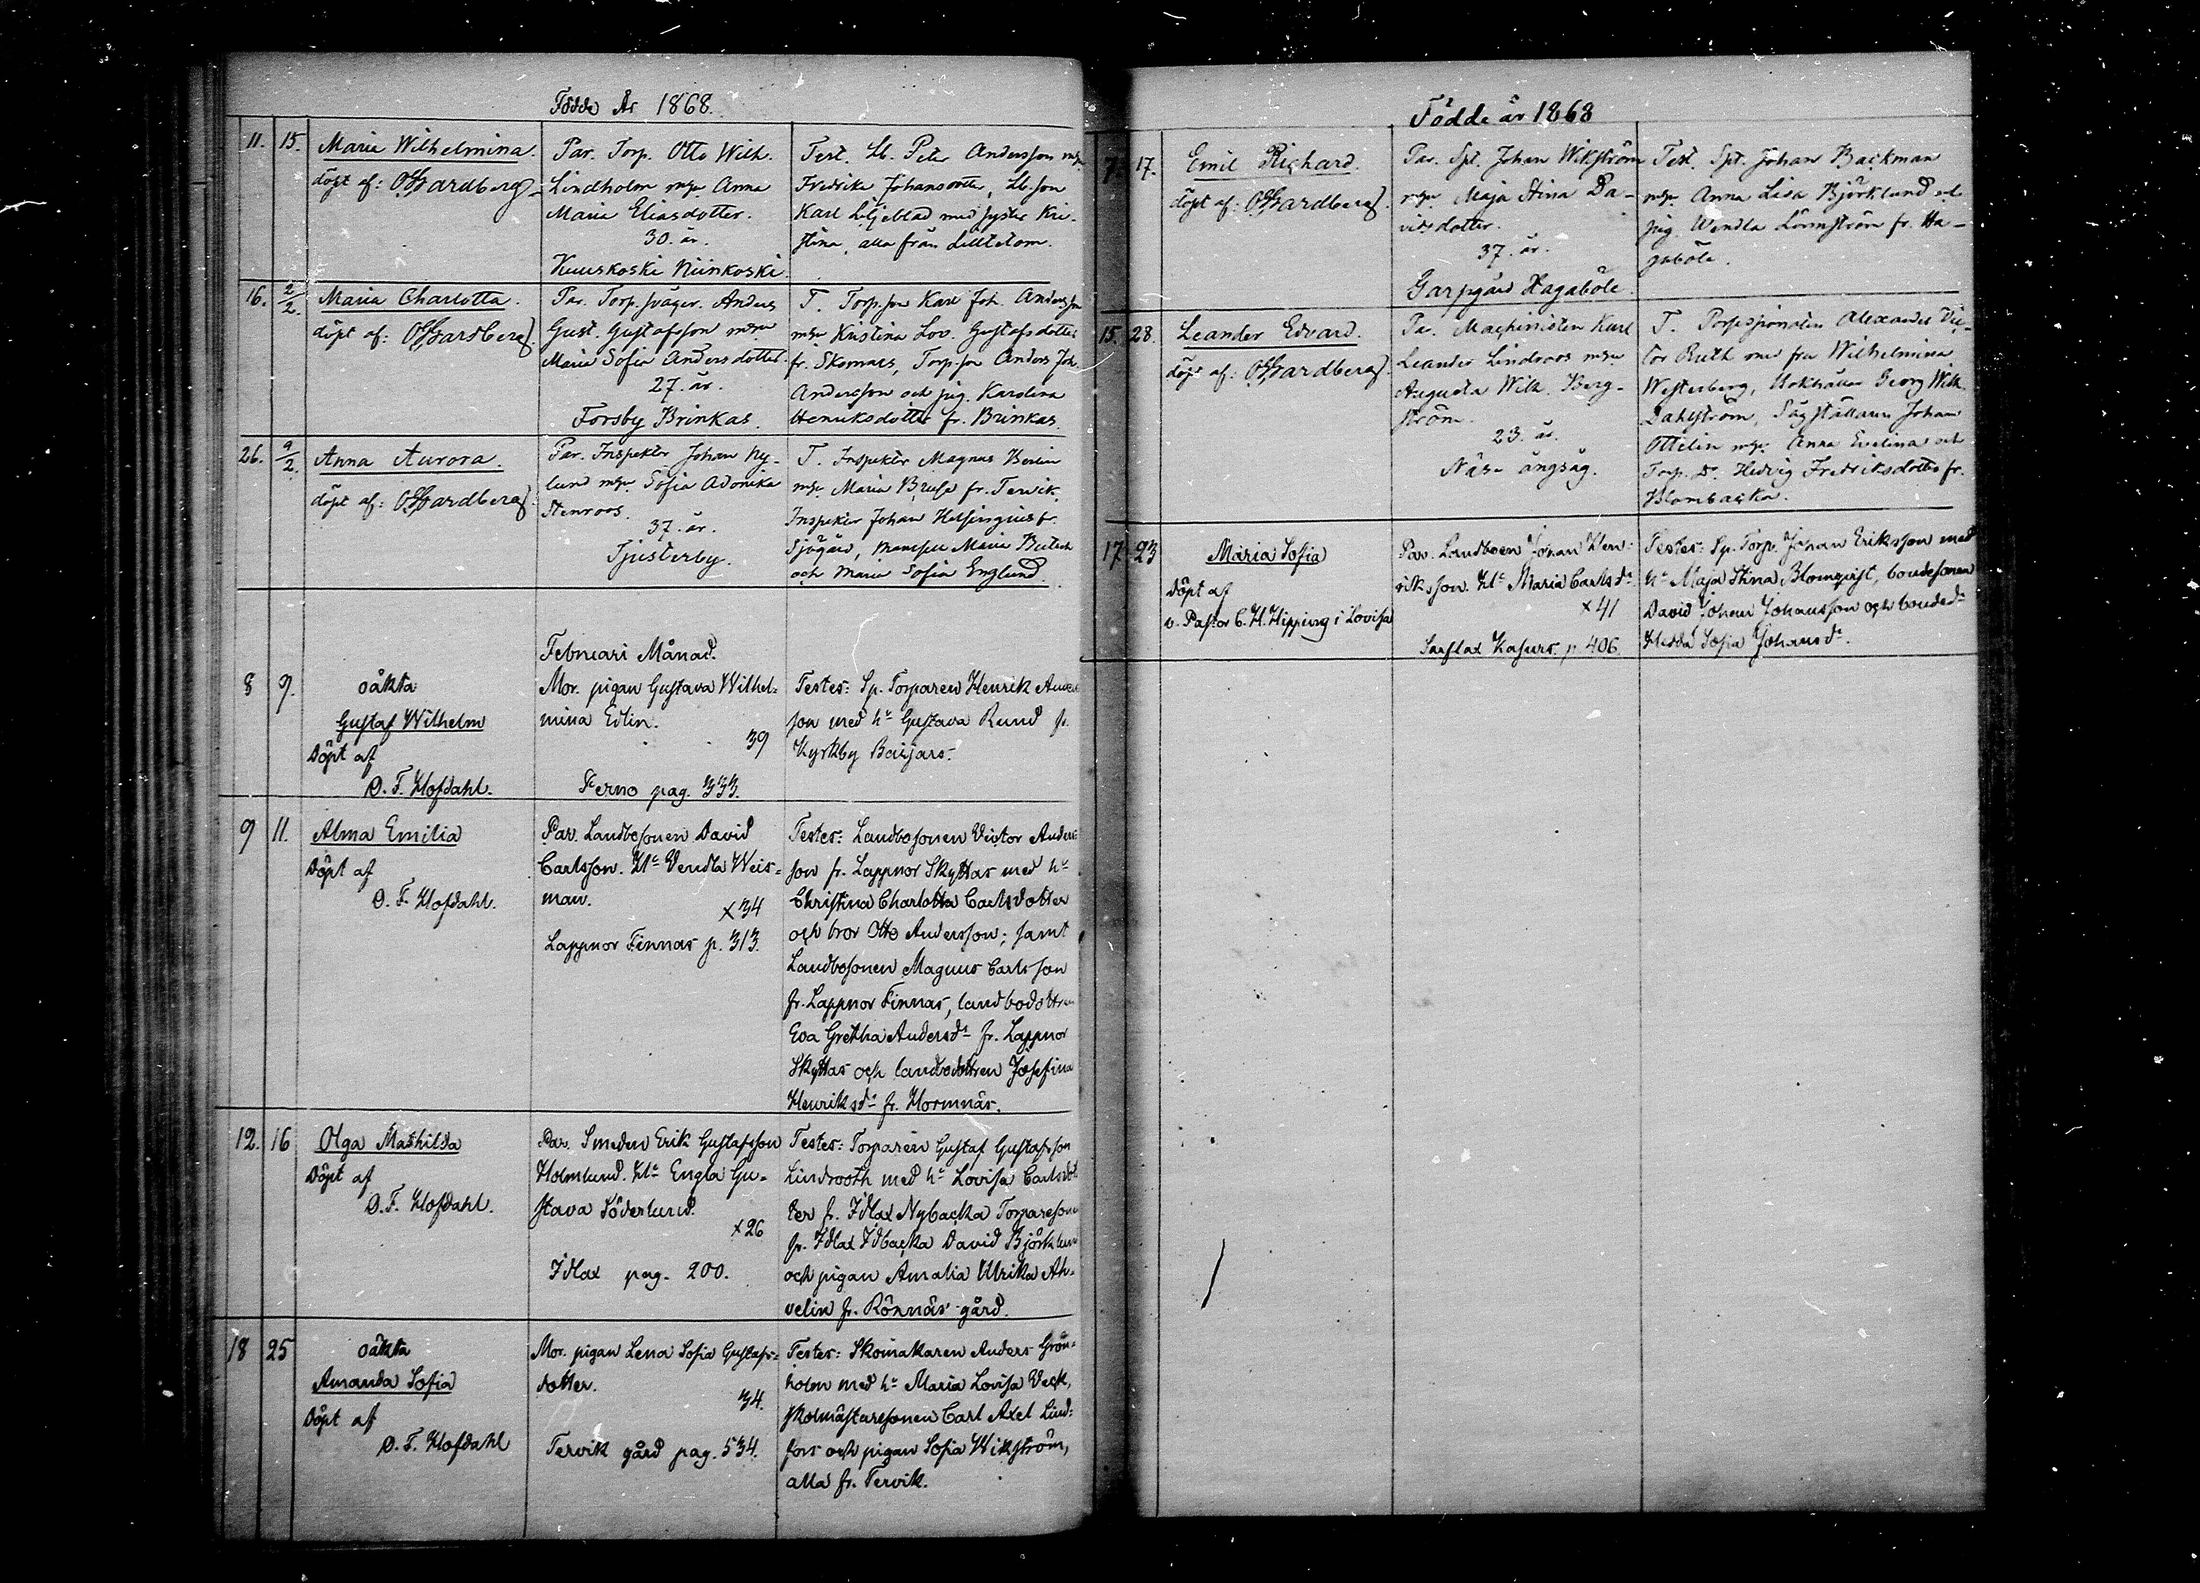 Födde År 1868.
11. 15. Maria Wilhelmina.
döpt af: OHardberg
Par. Torp. Otto Wilh.
Lindholm m hu Anna
Maria Eliasdotter.
30. år.
Kuuskoski Niinkoski.
Test. Lb. Peter Andersson m hu
Fredrika Johansdotter, Lb. son
Karl Liljeblad med syster Kri-
stina, alla från Lilltetom.
16. 2/2. Maria Charlotta.
döpt af:
Par. Torp. sväger. Anders
Gust. Gustafsson m hu
Maria Sofia Andersdotter.
27. år.
Forsby Brinkas.
T. Torp. son Karl Joh. Andersson
m hu Kristina Lov. Gustafsdotter
fr. Skomars, Torp. son Anders Joh.
Andersson och pig. Karolina
Henriksdotter fr. Brinkas.
26. 9/2. Anna Aurora.
döpt af:
Par. Inspektor Johan Ny-
lund m hu Sofia Adonika
Stenroos.
37. år.
Tjusterby.
T. Inspektor Magnus
m hu Maria fr. Tervik.
Inspektor Johan Helsingius fr.
Sjögård, Mamsell Maria
och Maria Sofia Englund.
Februari Månad.
8 9. oäkta
Gustaf Wilhelm
Döpt af
O. F. Hofdahl.
Mor. pigan Gustava Wilhel-
mina Edlin.
39
Ferno pag. 333.
Testes: Sp. Torparen Henrik Anders
son med hu Gustava Rund fr.
Kyrkby Baijars.
9 11. Alma Emilia
Döpt af
O. F. Hofdahl.
Par. Landbosonen David
Carlsson. Hu Vendla Weis-
man.
x34
Lappnor Finnas p. 313.
Testes: Landbosonen Victor Anders-
son fr. Lappnor Skyttas med hu
Christina Charlotta Carlsdotter
och bror Otto Andersson; samt
Landbosonen Magnus Carlsson
fr. Lappnor Finnas, landbodottren
Eva Gretha Andersdr fr. Lappnor
Skyttas och landbodottren Josefina
Henriksdr fr. Hormnäs.
12. 16 Olga Mathilda
Döpt af
O. F. Hofdahl.
Par. Smeden Erik Gustafsson
Holmlund. Hu Engla Gu-
stava Söderlund.
x26
Idlax pag. 200.
Testes: Torparen Gustaf Gustafsson
Lindrooth med hu Lovisa Carlsdot
ter fr. Idlax Nybacka Torparesonen
fr. Idlax Idbacka David Björklund
och pigan Amalia Ulrika Ah-
velin fr. Rönnäs gård.
18 25 oäkta
Amanda Sofia
Döpt af
O. F. Hofdahl
Mor. pigan Lena Sofia Gustafs-
dotter.
34.
Tervik gård pag. 534.
Testes: Skomakaren Anders Grön-
holm med hu Maria Lovisa Veck,
skolmästaresonen Carl Axel Lind-
fors och pigan Sofia Wikström,
alla fr. Tervik.
Födde år 1868
7. 17. Emil Richard.
döpt af:
Par. Spt. Johan Wikström
m hu Maja Stina Da-
vidsdotter.
37. år.
Garpgård Hagaböle.
Test. Spt. Johan Backman
m hu Anna Lisa Björklund och
pig. Wendla Lönnström fr. Ha-
gaböle.
15. 28. Leander Edvard.
döpt af:
Par. Machinisten Karl
Leander Lindroos m hu
Augusta Wilh. Berg-
ström.
23. år.
Näse ångsåg.
T. Possessionaten Alexander Vic-
tor Ruth med fru Wilhelmina
Westerberg, Bokhållar Georg Wilh.
Dahlström, Sågställaren Johan
Ottelin m hu Anna Evelina och
Torp. Dr Hedvig Fredriksdotter fr.
Blombacka.
17. 23 Maria Sofia
Döpt af
v. Pastor C. H. Hipping i Lovisa
Par. Landboen Johan Hen-
riksson. Hu Maria Carlsdr
x41
Sarflax Kasurs. p. 406.
Testes: Sp. Torp. Johan Eriksson med
hu Maja Stina Blomqvist, bondesonen
David Johan Johansson och bonded.
Hedda Sofia Johansdr.